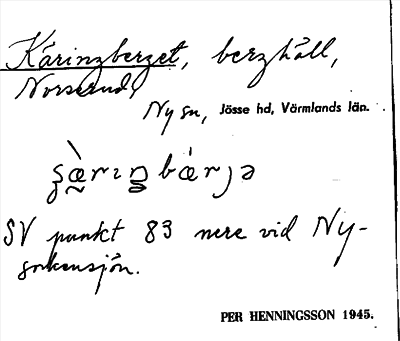 Käringberget, berghäll,
Norserud,
Ny sn, Jösse hd, Värmlands län.
SV punkt 83 nere vid Ny-
sockensjön.
PER HENNINGSSON 1945.